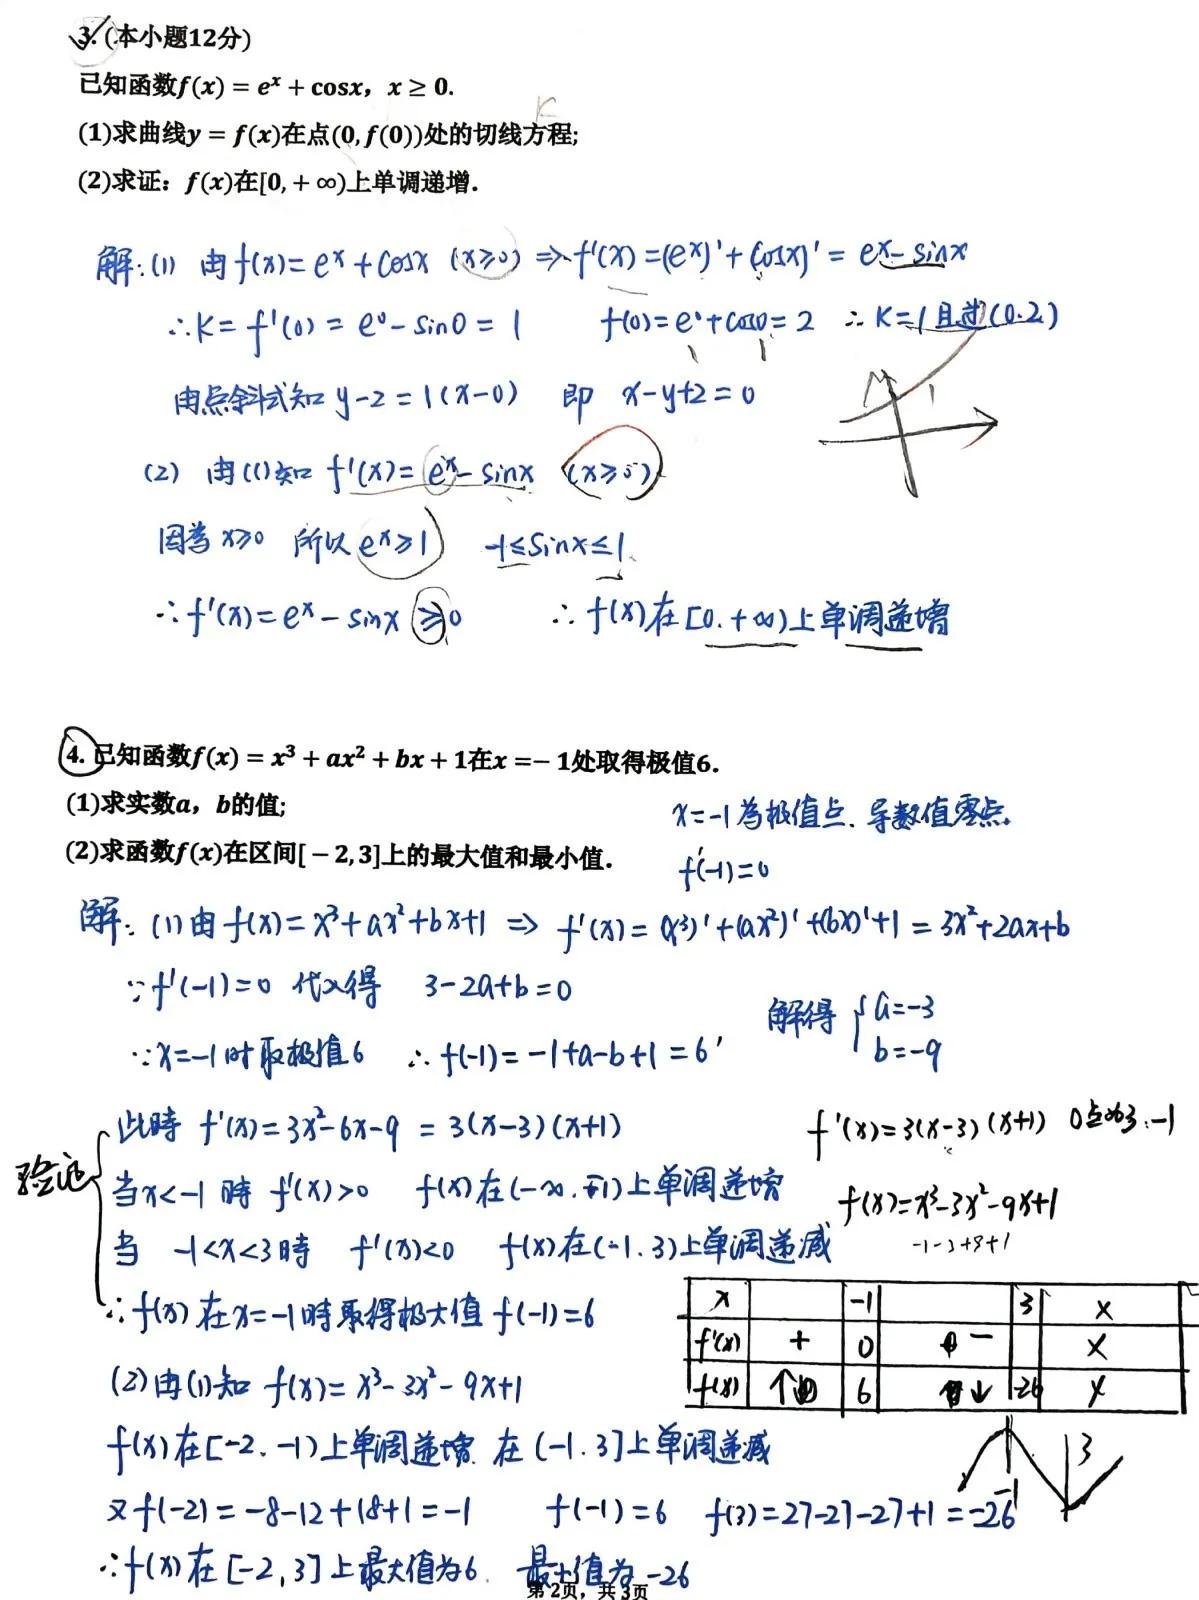 3.(本小题12分)
已知函数f(x) = eˣ + cosx，x ≥ 0.
K
(1)求曲线y = f(x)在点(0, f(0))处的切线方程;
(2)求证：f(x)在[0, + ∞)上单调递增.
解:(1) 由f(x)=eˣ+cosx (x≥0) ⇒ f'(x)=(eˣ)'+(cosx)'=eˣ-sinx
∴K=f'(0)=e⁰-sin0=1 f(0)=e⁰+cos0=2 ∴K=1且过(0.2)
1 1
由点斜式知 y-2=1(x-0) 即 x-y+2=0
1
(2) 由(1)知 f'(x)=eˣ-sinx (x≥0)
因为x≥0 所以eˣ≥1 -1≤sinx≤1
∴f'(x)=eˣ-sinx≥0 ∴f(x)在[0.+∞)上单调递增
4. 已知函数f(x) = x³ + ax² + bx + 1在x =− 1处取得极值6.
(1)求实数a，b的值;
x=-1为极值点、导数值零点.
(2)求函数f(x)在区间[− 2, 3]上的最大值和最小值.
f'(-1)=0
解:(1)由f(x)=x³+ax²+bx+1 ⇒ f'(x)=(x³)'+(ax²)'+(bx)'+1=3x²+2ax+b
∵f'(-1)=0 代入得 3-2a+b=0
解得 { a=-3
b=-9
∵x=-1时取极值6 ∴f(-1)=-1+a-b+1=6
验证
此時 f'(x)=3x²-6x-9=3(x-3)(x+1)
f'(x)=3(x-3)(x+1) 0点为3.-1
当x<-1時 f'(x)>0 f(x)在(-∞.-1)上单调递增
f(x)=x³-3x²-9x+1
当 -1<x<3時 f'(x)<0 f(x)在(-1.3)上单调递减
-1-3+9+1
∴f(x)在x=-1時取得极大值f(-1)=6
x -1 3 x
f'(x) + 0 - x
f(x) ↑ 6 ↓ -26 x
(2)由(1)知 f(x)=x³-3x²-9x+1
f(x)在[-2.-1)上单调递增 在(-1.3]上单调递减
-1 3
又f(-2)=-8-12+18+1=-1 f(-1)=6 f(3)=27-27-27+1=-26
∴f(x)在[-2,3]上最大值为6. 最小值为-26
第 2页，共 3页